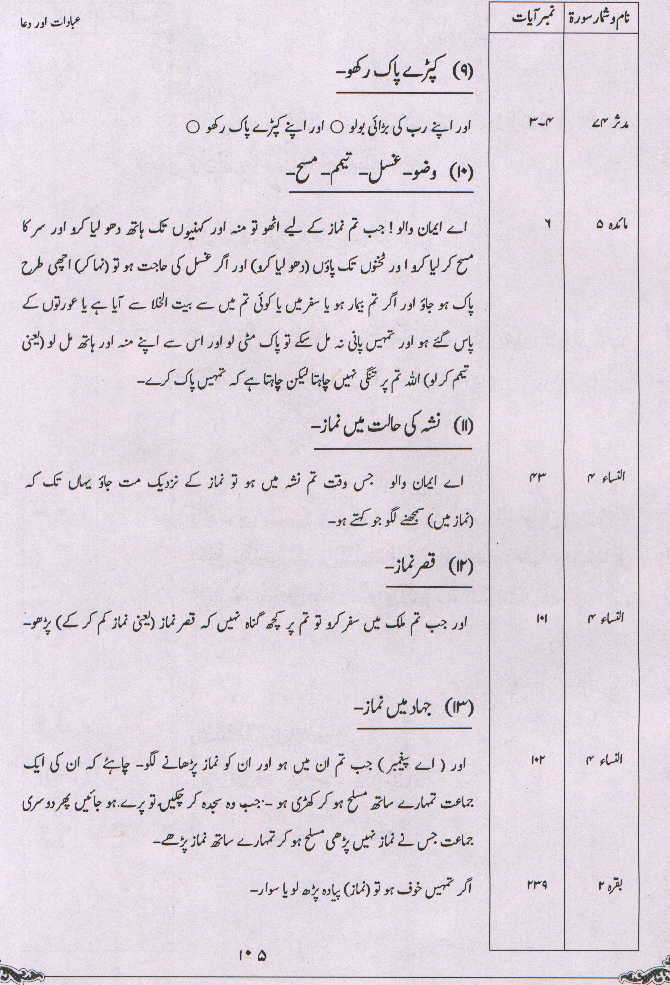 عبادات اور دعا
نمبر آیات
نام و شمار سورۃ
(۹) کپڑے پاک رکھو۔
مدثر ۷۴
۳-۴
اور اپنے رب کی بڑائی بولو ○ اور اپنے کپڑے پاک رکھو ○
(۱۰) وضو۔ غسل۔ تیمم۔ مسح۔
مائدہ ۵
۶
اے ایمان والو! جب تم نماز کے لیے اٹھو تو منہ اور کہنیوں تک ہاتھ دھو لیا کرو اور سر کا
مسح کر لیا کرو اور ٹخنوں تک پاؤں (دھو لیا کرو) اور اگر غسل کی حاجت ہو تو (نہا کر) اچھی طرح
پاک ہو جاؤ اور اگر تم بیمار ہو یا سفر میں یا کوئی تم میں سے بیت الخلا سے آیا ہے یا عورتوں کے
پاس گئے ہو اور تمہیں پانی نہ مل سکے تو پاک مٹی لو اور اس سے اپنے منہ اور ہاتھ مل لو (یعنی
تیمم کر لو) اللہ تم پر تنگی نہیں چاہتا لیکن چاہتا ہے کہ تمہیں پاک کرے۔
(۱۱) نشہ کی حالت میں نماز۔
النساء ۴
۴۳
اے ایمان والو جس وقت تم نشہ میں ہو تو نماز کے نزدیک مت جاؤ یہاں تک کہ
(نماز میں) سمجھنے لگو جو کہتے ہو۔
(۱۲) قصر نماز۔
النساء ۴
۱۰۱
اور جب تم ملک میں سفر کرو تو تم پر کچھ گناہ نہیں کہ قصر نماز (یعنی نماز کم کر کے) پڑھو۔
(۱۳) جہاد میں نماز۔
النساء ۴
۱۰۲
اور (اے پیغمبر) جب تم ان میں ہو اور ان کو نماز پڑھانے لگو۔ چاہئے کہ ان کی ایک
جماعت تمہارے ساتھ مسلح ہو کر کھڑی ہو ۔ جب وہ سجدہ کر چکیں تو پرے ہو جائیں پھر دوسری
جماعت جس نے نماز نہیں پڑھی مسلح ہو کر تمہارے ساتھ نماز پڑھے۔
بقرہ ۲
۲۳۹
اگر تمہیں خوف ہو تو (نماز) پیادہ پڑھ لو یا سوار۔
۱۰۵